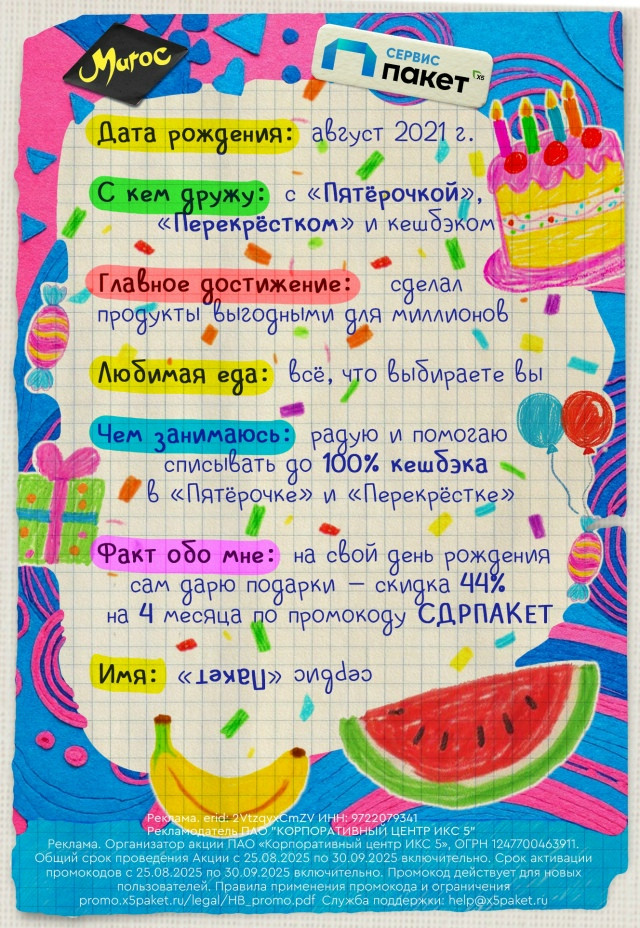 Мигос
СЕРВИС
пакет х5
Дата рождения: август 2021 г.
С кем дружу: с «Пятёрочкой»,
«Перекрёстком» и кешбэком
Главное достижение: сделал
продукты выгодными для миллионов
Любимая еда: всё, что выбираете вы
Чем занимаюсь: радую и помогаю
списывать до 100% кешбэка
в «Пятёрочке» и «Перекрёстке»
Факт обо мне: на свой день рождения
сам дарю подарки – скидка 44%
на 4 месяца по промокоду СДРПАКЕТ
Имя: сервис «Пакет»
Реклама. erid: 2VtzqyxCmZV ИНН: 9722079341
Рекламодатель ПАО "КОРПОРАТИВНЫЙ ЦЕНТР ИКС 5"
Реклама. Организатор акции ПАО «Корпоративный центр ИКС 5», ОГРН 1247700463911.
Общий срок проведения Акции с 25.08.2025 по 30.09.2025 включительно. Срок активации
промокодов с 25.08.2025 по 30.09.2025 включительно. Промокод действует для новых
пользователей. Правила применения промокода и ограничения
promo.x5paket.ru/legal/HB_promo.pdf Служба поддержки: help@x5paket.ru